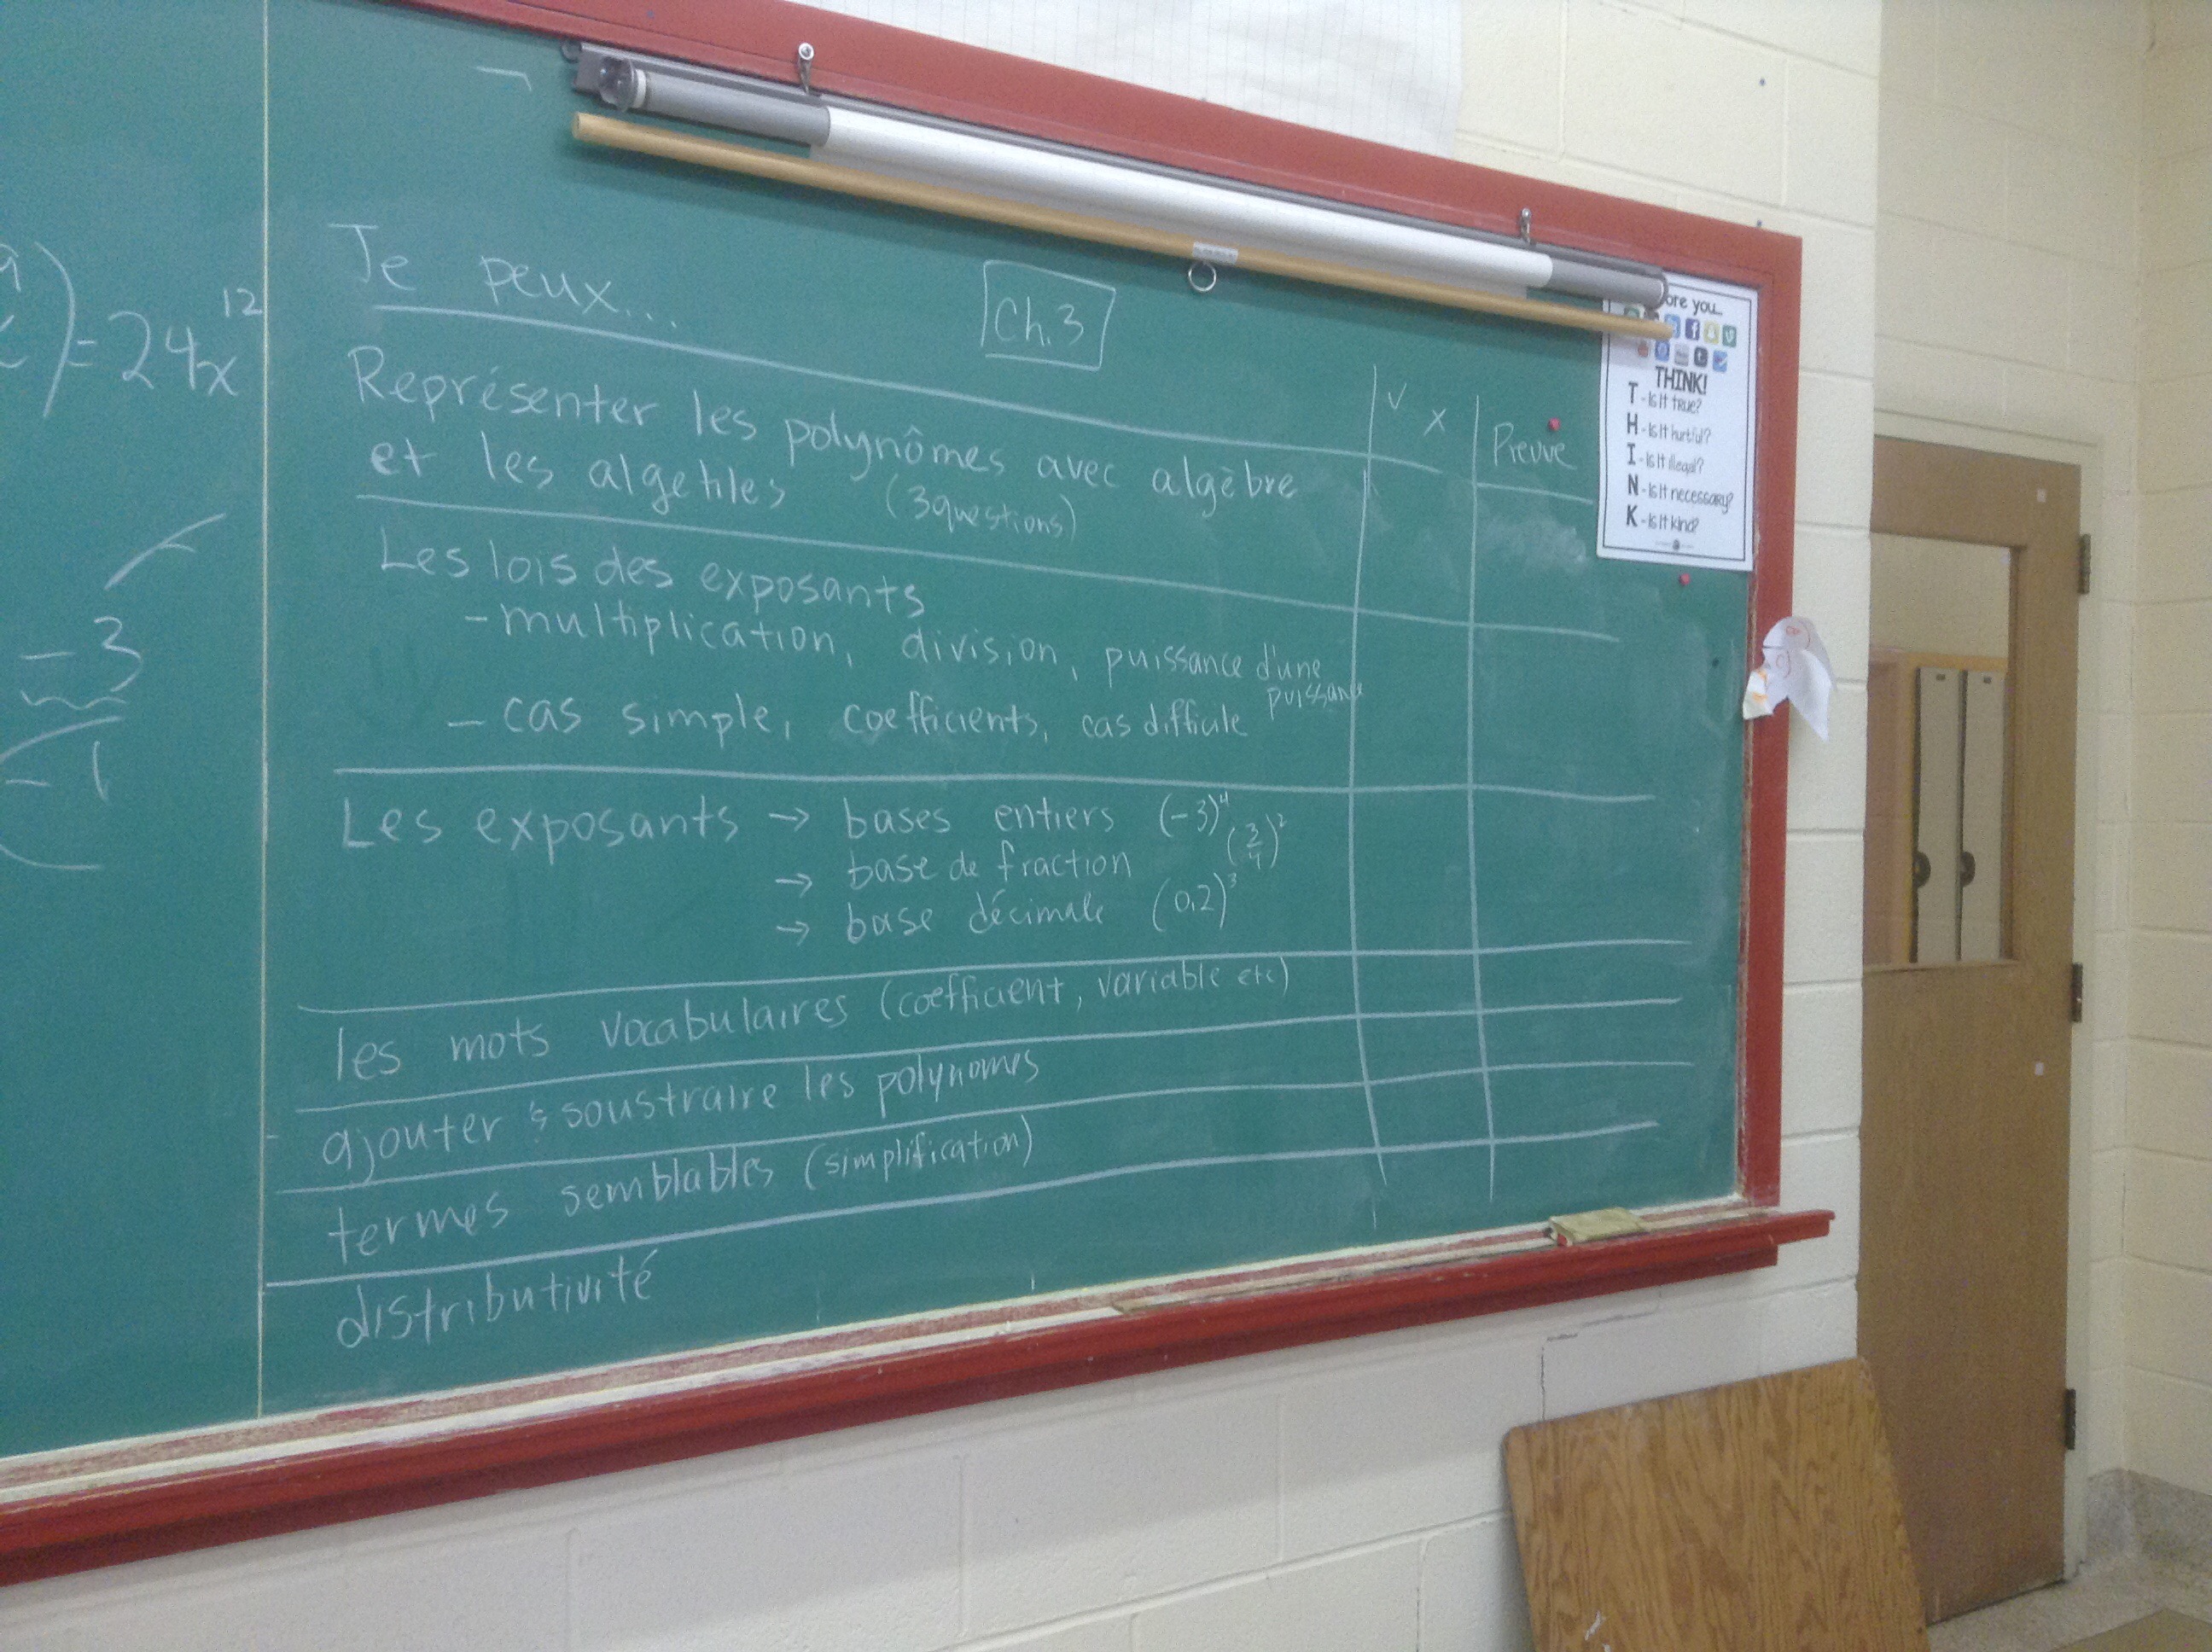 ) = 24x¹²
-3
-1
Je peux...
Ch.3
✓ x
Preuve
Représenter les polynômes avec algèbre
et les algetiles (3questions)
Les lois des exposants
- multiplication, division, puissance d'une
puissance
- cas simple, coefficients, cas difficile
Les exposants → bases entiers (-3)⁴
→ base de fraction (3/4)²
→ base décimale (0,2)³
les mots vocabulaires (coefficient, variable etc)
ajouter & soustraire les polynomes
termes semblables (simplification)
distributivité
ore you...
THINK!
T - Is it true?
H - Is it hurtful?
I - Is it illegal?
N - Is it necessary?
K - Is it kind?